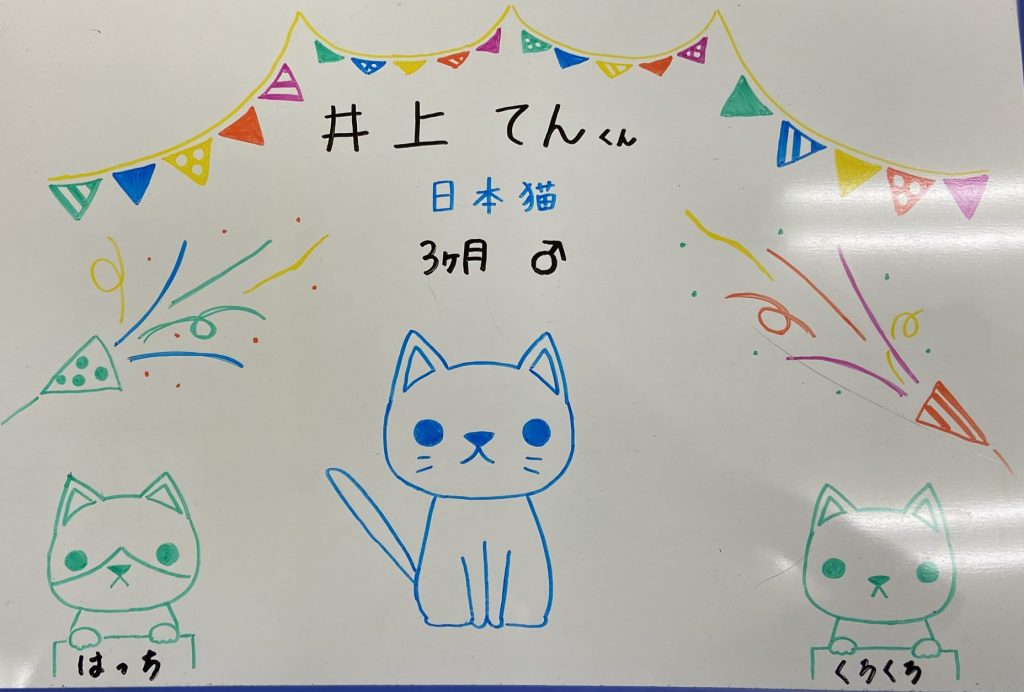 井上 てんくん
日本猫
3ヶ月 ♂
はっち
くろくろ